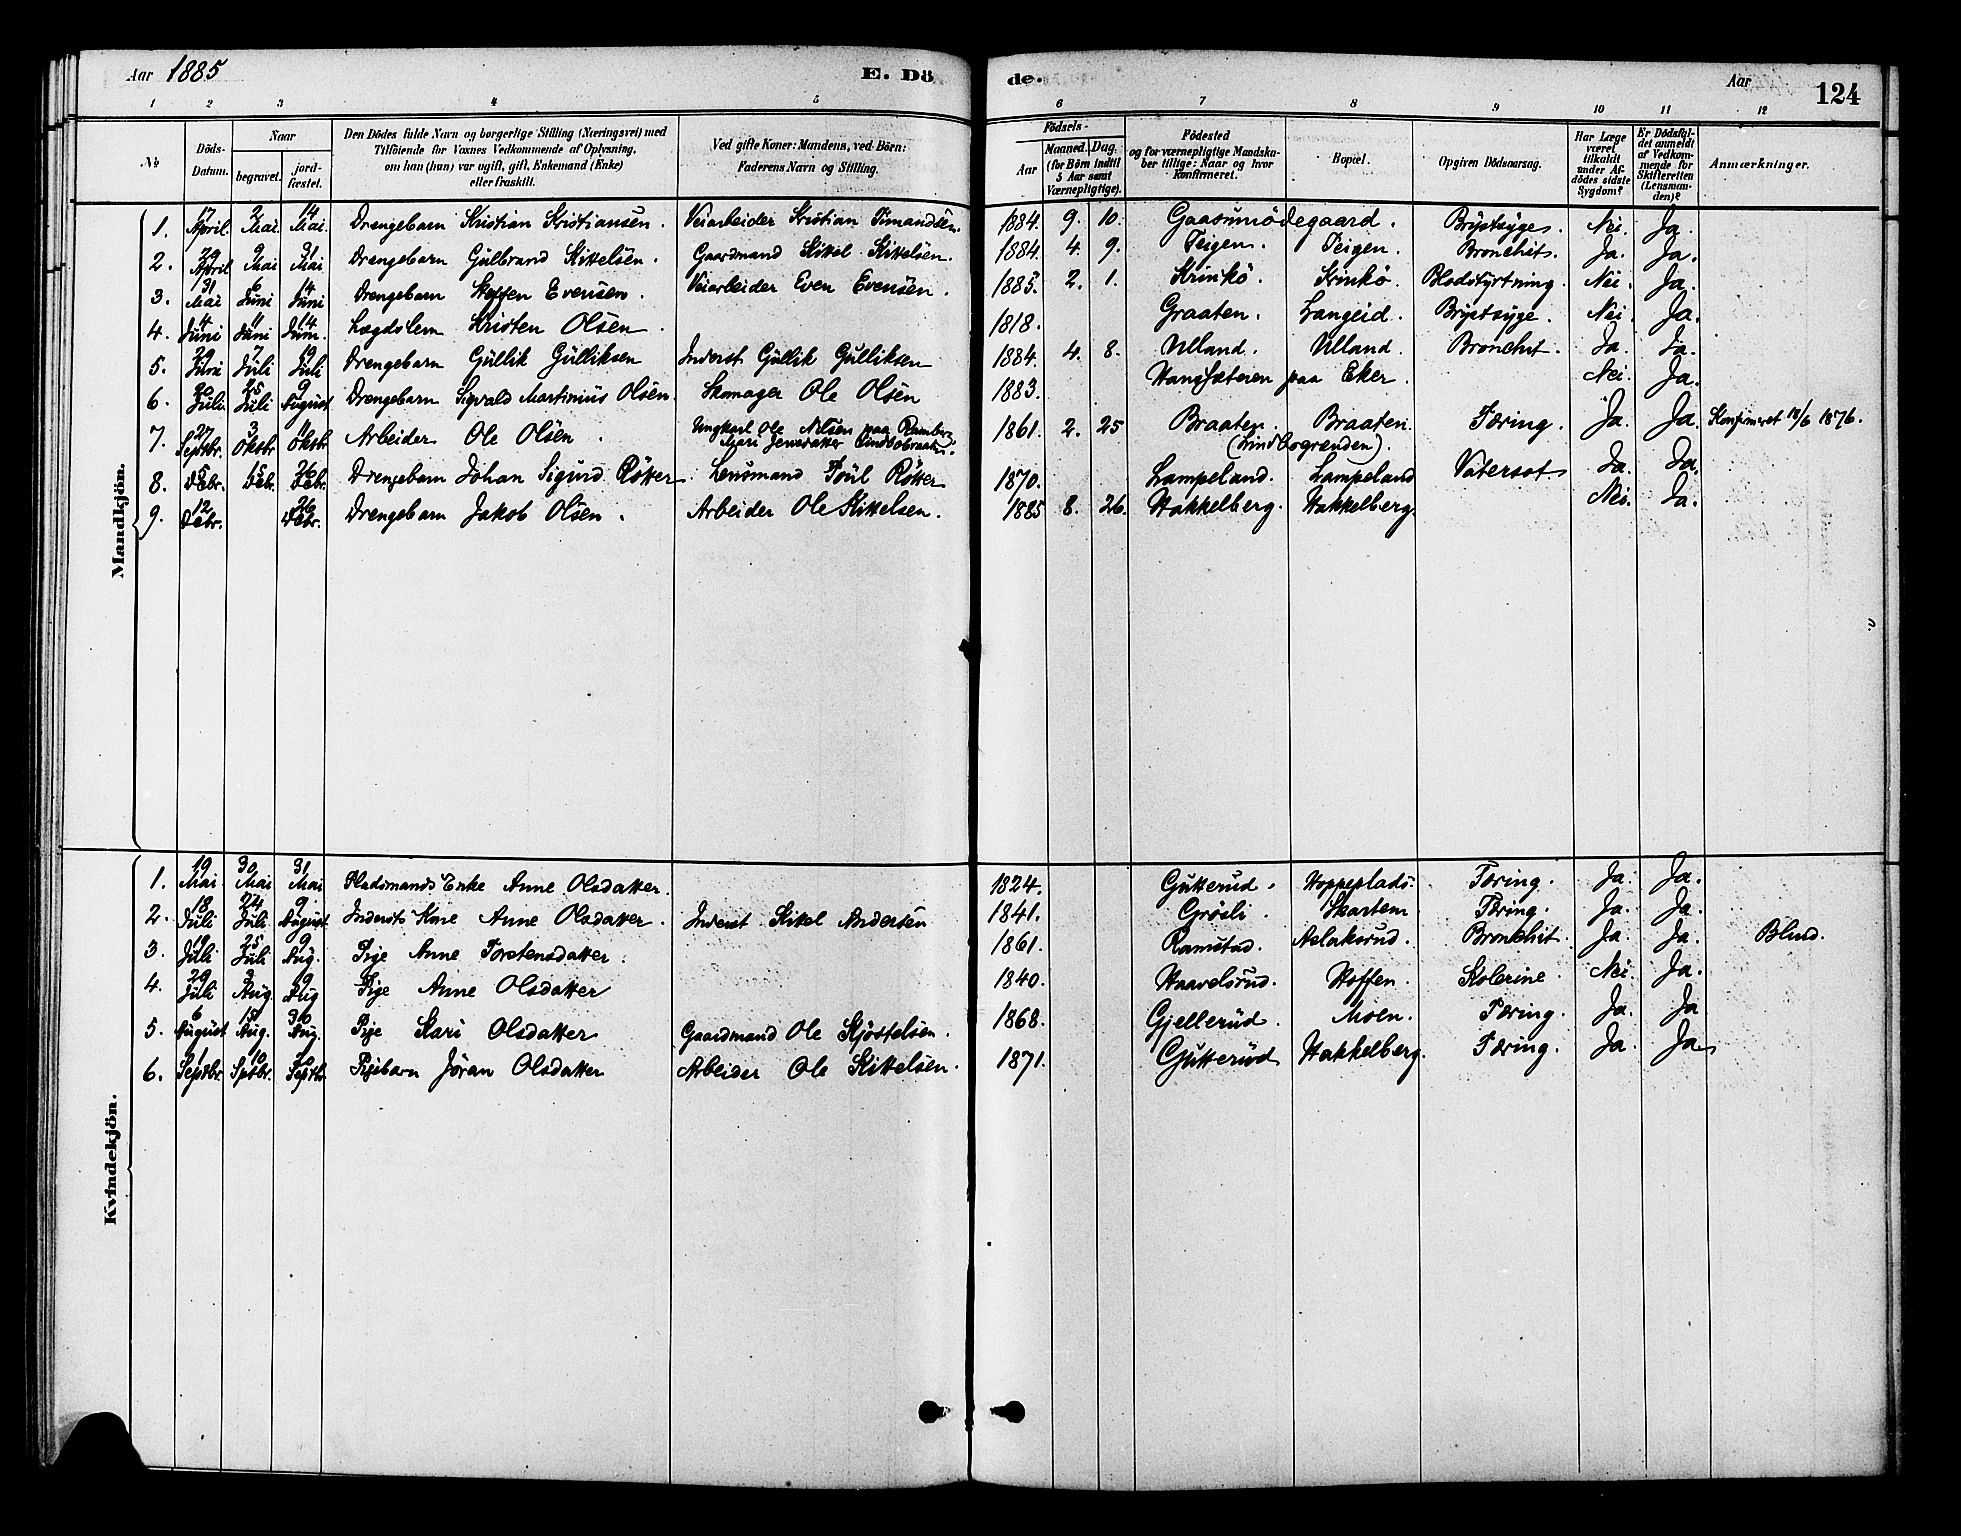 Aar 1885 E. Dö de. Aar 124
1 2 3 4 5 6 7 8 9 10 11 12
№ Döds-Datum. Naar begravet. jord-fæstet. Den Dödes fulde Navn og borgerlige Stilling (Næringsvei) med Tilföiende for Voxnes Vedkommende af Oplysning, om han (hun) var ugift, gift, Enkemand (Enke) eller fraskilt. Ved gifte Koner: Mandens, ved Börn: Faderens Navn og Stilling. Födsels- Aar Maaned. Dag. (for Börn indtil 5 Aar samt Værnepligtige). Födested og for værnepligtige Mandskaber tillige: Naar og hvor Konfirmeret. Bopæl. Opgiven Dödsaarsag. Har Læge været tilkaldt under Afdödes sidste Sygdom? Er Dödsfaldet anmeldt af Vedkommende for Skifteretten (Lensmanden)? Anmærkninger.
Mandkjön.
1. 17 April. 2 Mai. 14 Mai. Drengebarn Kristian Kristiansen. Veiarbeider Kristian Timandsen. 1884. 9. 10. Gaasumödegaard. Brystsyge. Nei. Ja.
2. 29 April 9 Mai 31 Mai Drengebarn Gulbrand Kittelsen. Gaardmand Kittel Kittelsen. 1884. 4. 9. Teigen. Teigen. Bronchit. Ja. Ja.
3. 31 Mai 6 Juni 14 Juni Drengebarn Steffen Evensen. Veiarbeider Even Evensen. 1885. 2. 1. Krinkö. Krinkö. Blodstyrtning. Nei. Ja.
4. 4 Juni 11 Juni 14 Juni. Lægdslem Kristen Olsen. 1818. Graaten. Langeid. Brystsyge. Nei. Ja.
5. 29 Juni 7 Juli 19 Juli Drengebarn Gullik Gulliksen Inderst Gullik Gulliksen 1884. 4. 8. Ulland. Ulland. Bronchit. Ja. Ja.
6. 20 Juli. 25 Juli 9 August Drengebarn Sigvald Martinius Olsen. Skomager Ole Olsen 1883. Hangsæteren paa Eker. Nei. Ja.
7. 27 Septbr. 3 Oktbr 11 Oktbr Arbeider Ole Olsen. Ungkarl Ole Nilsen paa Ramberg Mari Jensdatter Lindbobraaten. 1861. 2. 25 Braaten. Braaten. (Lindbogrænden). Tæring. Ja. Ja. Konfirmeret 18/6 1876.
8. 5 Debr. 15 Debr. 26 Debr. Drengebarn Johan Sigurd Rötter. Lensmand Poul Rötter 1870. Lampeland. Lampeland Vatersot. Ja. Ja.
9. 12 Debr. 26 Debr. Drengebarn Jakob Olsen. Arbeider Ole Kittelsen. 1885 8. 26. Hakkelberg. Hakkelberg. Nei. Ja.
Kvindekjön.
1. 19 Mai 30 Mai 31 Mai Pladsmands Enke Anne Olsdatter. 1824. Gutterud. Hoppeplads. Tæring. Ja. Ja.
2. 18 Juli 24 Juli 9 August Indersts Kone Anne Olsdatter. Inderst Kittel Andersen 1841. Grösli. Skartem Tæring. Ja. Ja.
3. 19 Juli 25 Juli 9 Aug. Pige Anne Torstensdatter. 1861. Ramstad. Aslaksrud. Bronchit. Ja. Ja. Blind.
4. 29 Juli 3 Aug. 9 Aug Pige Anne Olsdatter 1840. Haavelsrud. Hoffen. Kolerine. Nei. Ja.
5. 6 August 15 Aug. 30 Aug. Pige Kari Olsdatter Gaardmand Ole Kjöstelsen. 1868. Gjellerud. Moen. Tæring. Ja. Ja
6. 1 Septbr. 10 Sptbr. Septbr Pigebarn Jöran Olsdatter Arbeider Ole Kittelsen. 1871. Gutterud Hakkelberg. Tæring. Ja. Ja